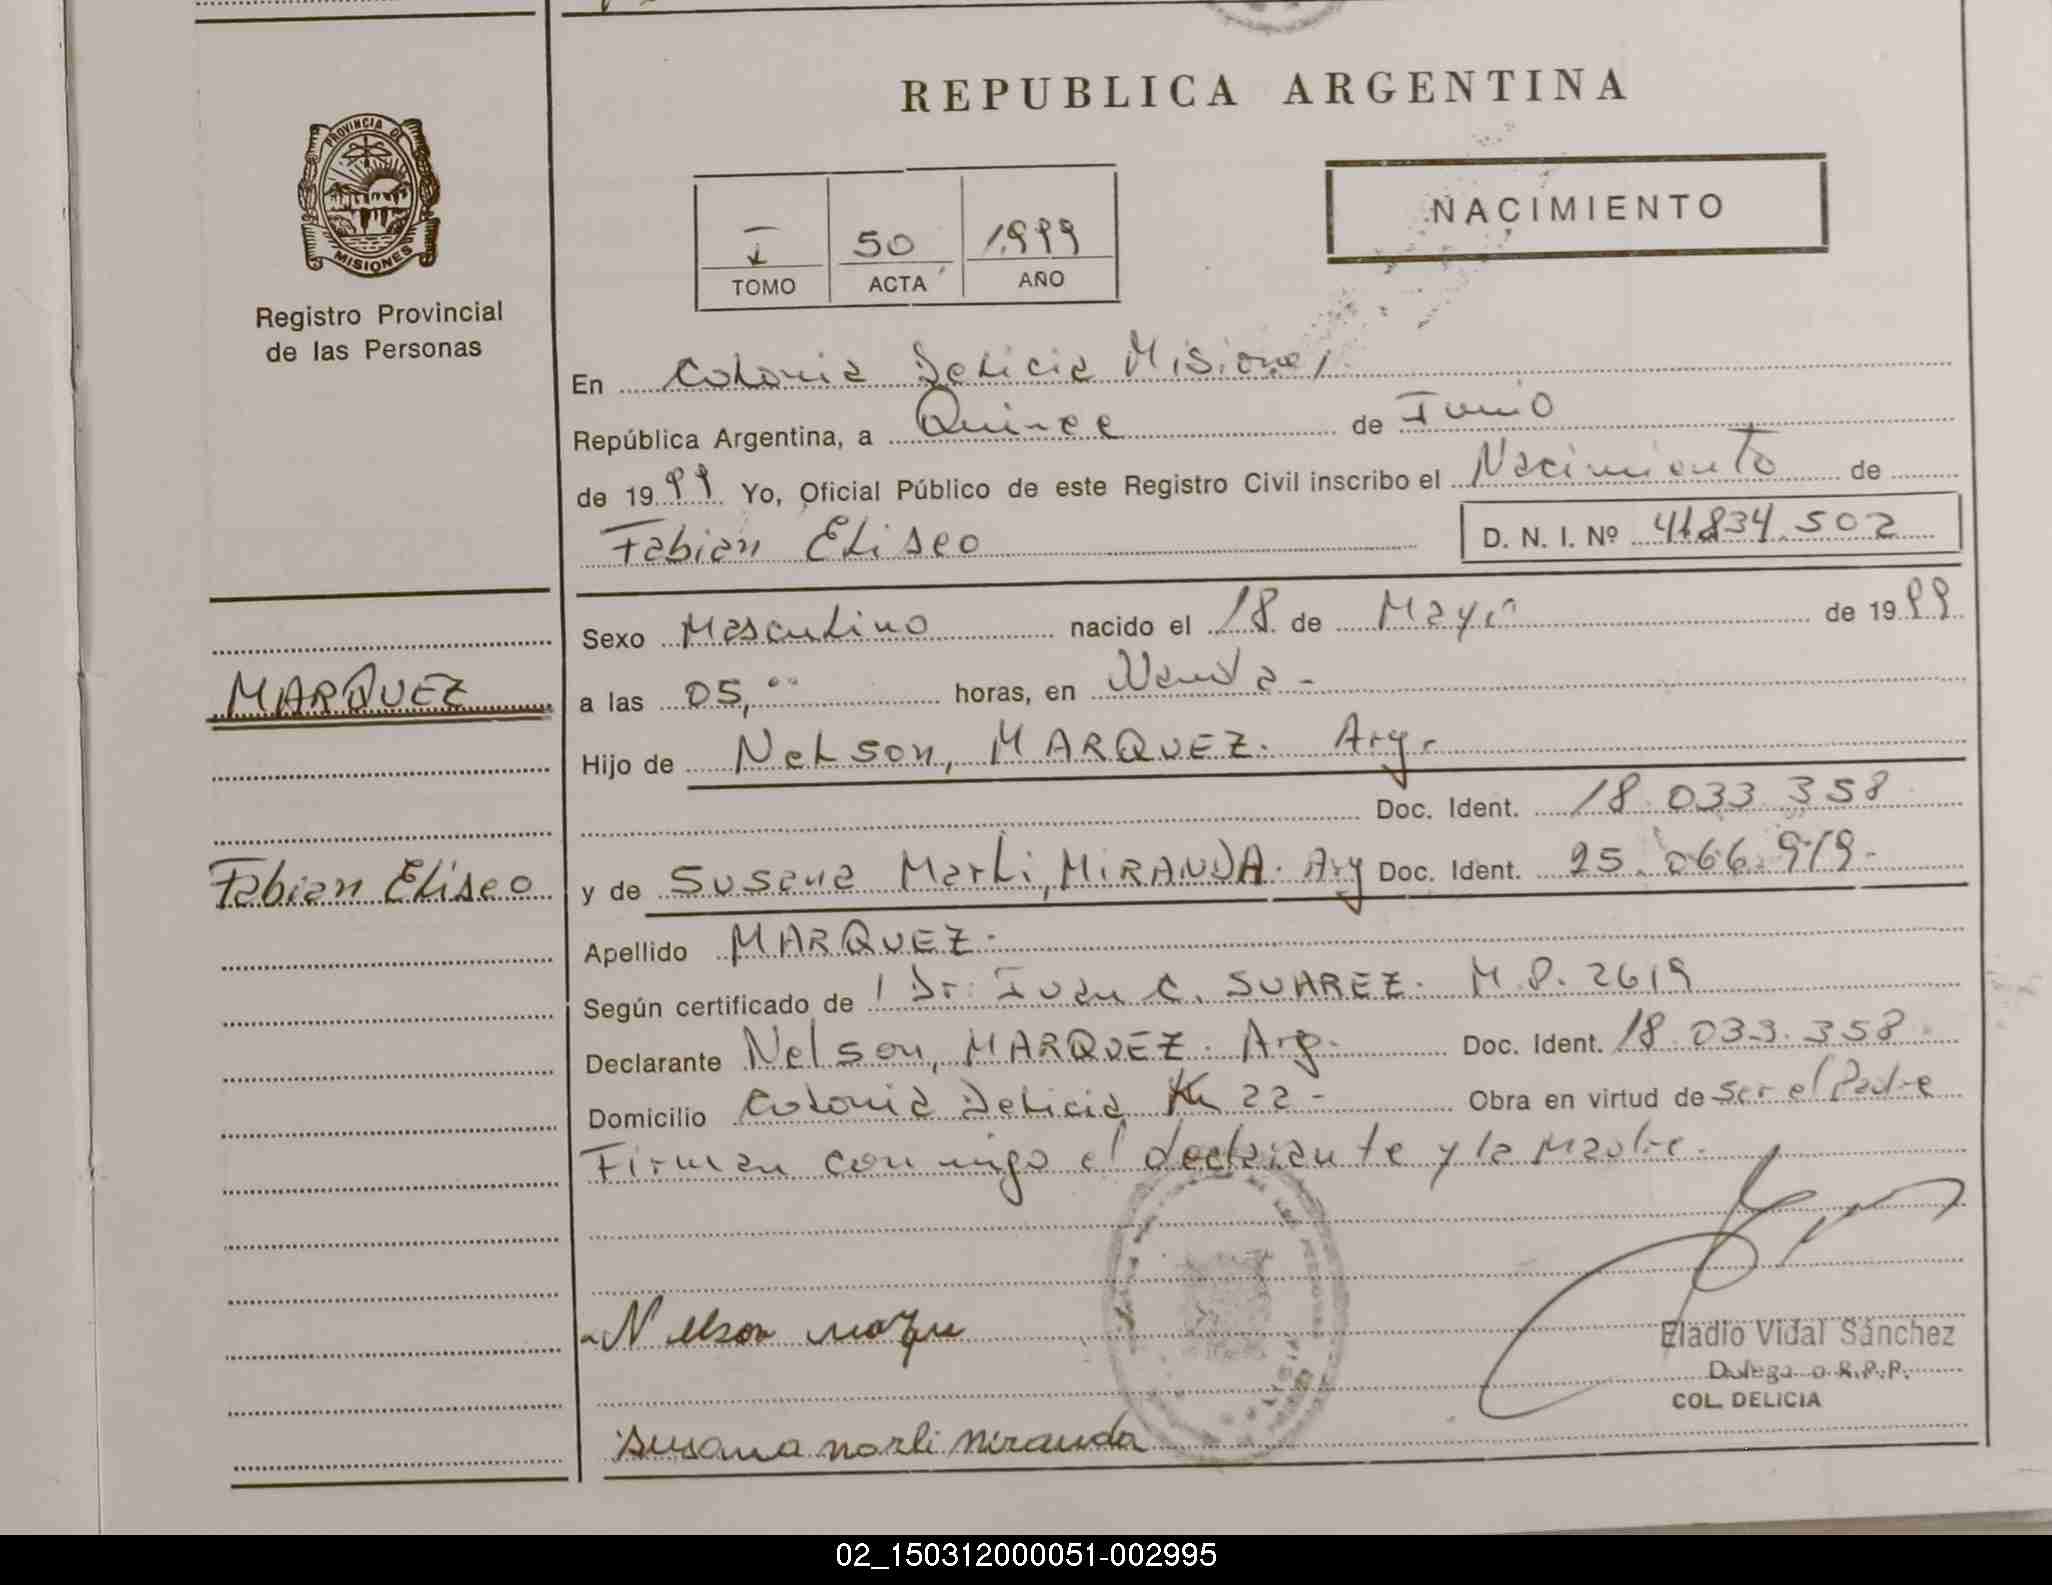 REPUBLICA ARGENTINA
PROVINCIA DE
MISIONES
Registro Provincial
de las Personas
I 50 1.999
TOMO ACTA AÑO
NACIMIENTO
En Colonia Delicia Misiones
República Argentina, a Quince de Junio
de 1999 Yo, Oficial Público de este Registro Civil inscribo el Nacimiento de
Fabian Eliseo D. N. I. Nº 41.834.502
Sexo Masculino nacido el 18 de Mayo de 1999
MARQUEZ
a las 05,00 horas, en Wanda -
Hijo de Nelson, MARQUEZ. Arg.
Doc. Ident. 18.033.358
Fabian Eliseo
y de Susana Marli, MIRANDA. Arg Doc. Ident. 25.066.919.-
Apellido MARQUEZ.
Según certificado de Dr. Ivan C. SUAREZ. M.P. 2619
Declarante Nelson, MARQUEZ. Arg. Doc. Ident. 18.033.358.
Domicilio Colonia Delicia Km 22 - Obra en virtud de ser el Padre
Firman conmigo el declarante y la Madre.
Nelson
Eladio Vidal Sánchez
Delegado R.P.P.
COL. DELICIA
susana marli miranda
02_150312000051-002995